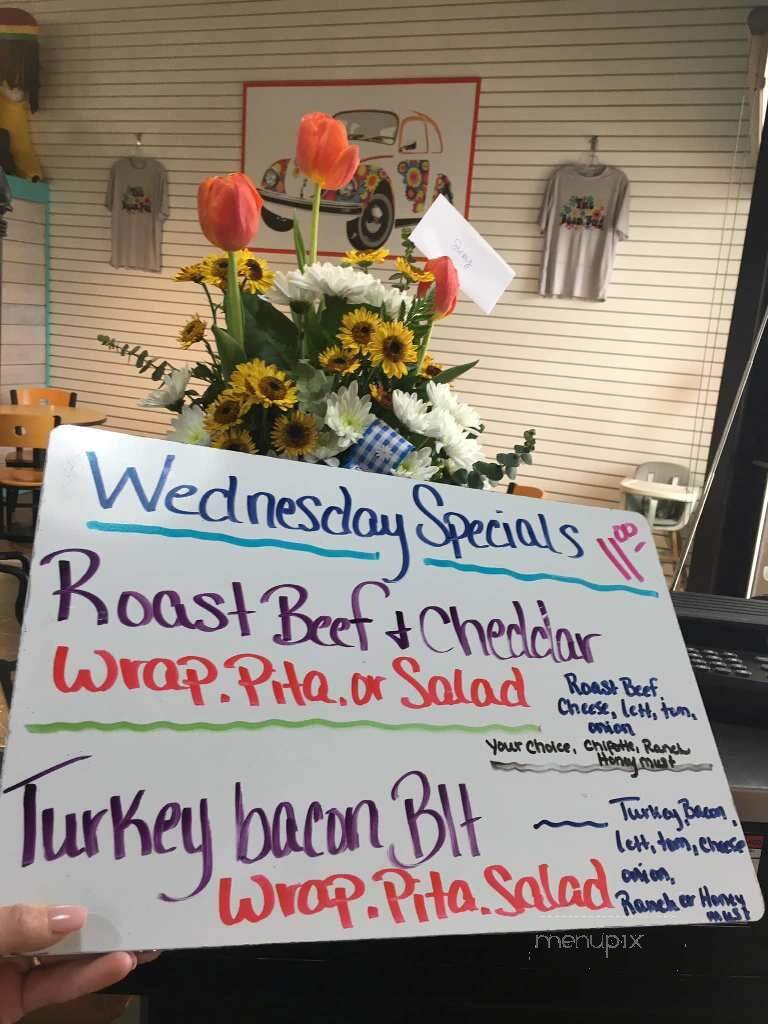 Wednesday Specials 11.00-
Roast Beef & Cheddar
Wrap. Pita. or Salad
Roast Beef,
Cheese, lett, tom,
onion
Your choice, Chipotle, Ranch
Honey must
Turkey bacon Blt
Wrap. Pita. Salad
Turkey, Bacon,
lett, tom, cheese
onion,
Ranch or Honey
must
menupix